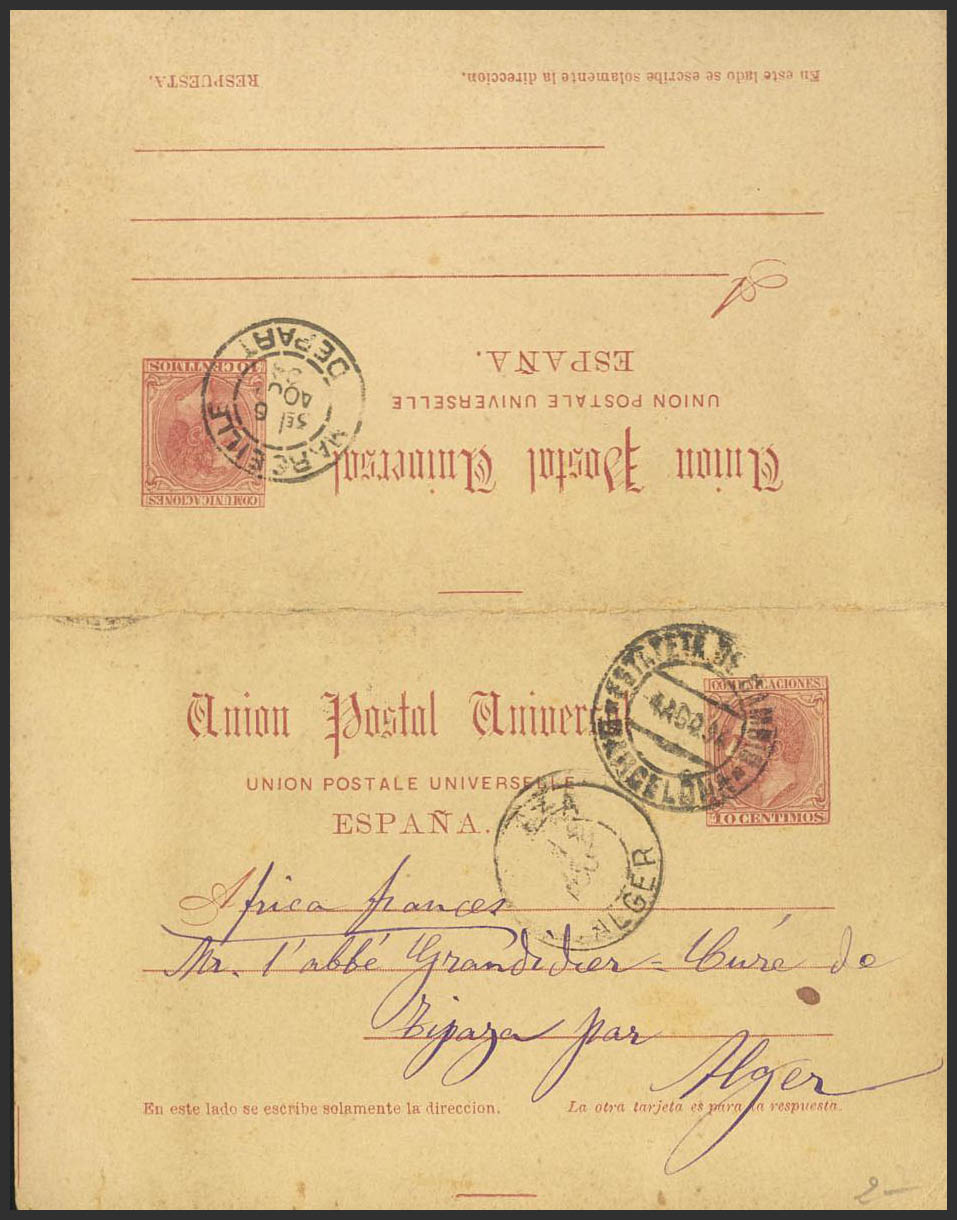 RESPUESTA.
En este lado se escribe solamente la direccion.
A
ESPAÑA.
UNION POSTALE UNIVERSELLE
Union Postal Universal
10 CENTIMOS
COMUNICACIONES
MARSEILLE
DEPART
6
AOU
Union Postal Univer
UNION POSTALE UNIVERSELLE
ESPAÑA.
COMUNICACIONES
10 CENTIMOS
ESTAFETA DE CAMBIO
4 AGO 94
BARCELONA
ALGER
Africa frances
Mr. l'abbé Grandidier = Curé de
Tipaza par
Alger
En este lado se escribe solamente la direccion.
La otra tarjeta es para la respuesta.
2-